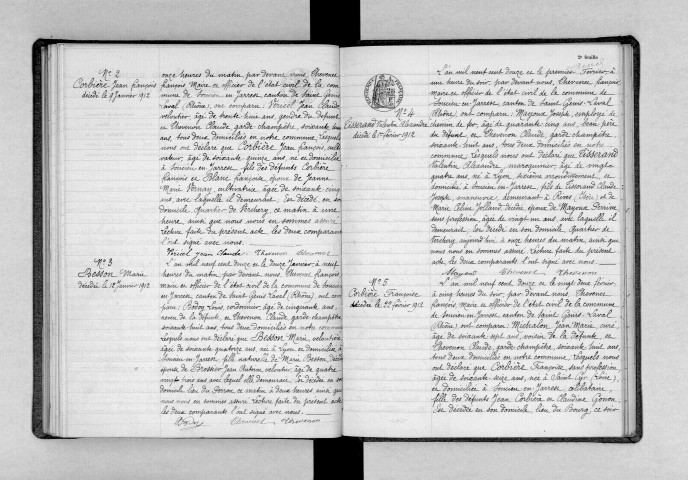 N° 2
Corbière Jean François
décédé le 8 janvier 1912
onze heures du matin, par devant nous, Thevenet
François, Maire et officier de l'état civil de la com
mune de Soucieu en Jarrest, canton de Saint Genis
Laval (Rhône), ont comparu: Voricel Jean Claude,
veloutier, âgé de trente huit ans, gendre du défunt
et Thevenon Claude, garde champêtre, soixante huit
ans, tous deux domiciliés en notre commune, lesquels
nous ont déclaré que Corbière Jean François, culti
vateur, âgé de soixante quinze ans, né et domicilié
à Soucieu en Jarrest, fils des défunts Corbière
François et Blanc Françoise, époux de Jeanne
Marie Vernay, cultivatrice, âgée de soixante cinq
ans, avec laquelle il demeurait. Est décédé, en son
domicile, quartier de Verchery, ce matin à
heures, ainsi que nous nous en sommes assuré
Lecture faite du présent acte, les deux comparants
l'ont signé avec nous.
Voricel Jean Claude Thevenon Thevenet
N° 3
Besson Marie
décédée le 12 janvier 1912
L'an mil neuf cent douze et le douze Janvier, à neuf
heures du matin, par devant nous, Thevenet François,
maire et officier de l'état civil de la commune de Soucieu
en Jarrest, canton de Saint Genis Laval (Rhône), ont com
paru: Louis, cordonnier, âgé de cinquante ans,
de la défunte, et Thevenon Claude, garde champêtre
soixante huit ans, tous deux domiciliés en notre commune
lesquels nous ont déclaré que Besson Marie, veloutière
âgée de soixante quatorze ans, née à Lyon et domiciliée à
Soucieu en Jarrest, fille naturelle de Marie Besson, décédée
épouse de Jean Antoine veloutier, âgé de quatre
vingt trois ans avec lequel elle demeurait. Est décédée en son
domicile, lieu du ce matin à deux heures ainsi que
nous nous en sommes assuré. Lecture faite du présent acte
les deux comparants l'ont signé avec nous.
Thevenet Thevenon
2e feuille
N° 4
Tisserand Valentin Alexandre
décédé le 1er février 1912
L'an mil neuf cent douze et le premier Février à
une heure du soir, par devant nous, Thevenet François,
maire et officier de l'état civil de la commune de
Soucieu en Jarrest, canton de Saint Genis-Laval
(Rhône), ont comparu: Mayoux Joseph, employé de
chemin de fer, âgé de quarante cinq ans, beau père
du défunt, et Thevenon Claude, garde champêtre
soixante huit ans, tous deux domiciliés en notre
commune, lesquels nous ont déclaré que Tisserand
Valentin Alexandre, maroquinier, âgé de vingt
quatre ans, né à Lyon, arrondissement, et
domicilié à Soucieu en Jarrest, fils de Tisserand Claude
Joseph, manœuvre, demeurant à Rives (Isère) et de
Marie Célina Jolland, décédée, époux de Mayoux Perrine
sans profession, âgée de vingt un ans, avec laquelle il
demeurait. Est décédé en son domicile, quartier de
Verchery, aujourd'hui à onze heures du matin, ainsi que
nous nous en sommes assuré. Lecture faite du présent
acte, les deux comparants l'ont signé avec nous.
Mayoux Thevenet Thevenon
N° 5
Corbière Françoise
décédée le 22 février 1912
L'an mil neuf cent douze et le vingt deux Février,
à cinq heures du soir, par devant nous, Thevenet
François, maire et officier de l'état civil de la commune
de Soucieu en Jarrest, canton de Saint Genis-Laval
(Rhône), ont comparu: Michalon, Jean Marie, curé
âgé de soixante sept ans, voisin de la défunte, et
Thevenon Claude, garde champêtre, soixante huit ans,
tous deux domiciliés en notre commune, lesquels nous
ont déclaré que Corbière Françoise, sans profession,
âgée de soixante seize ans, née à Saint
et domiciliée à Soucieu en Jarrest, célibataire,
fille des défunts Jean Corbière et Claudine Gonon
Est décédée en son domicile, lieu du Bourg, ce soir